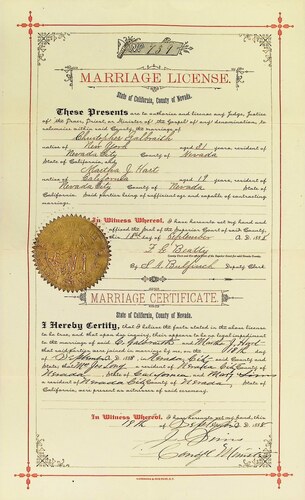 No 939
MARRIAGE LICENSE.
State of California, County of Nevada.
These Presents are to authorize and license any Judge, Justice
of the Peace, Priest, or Minister of the Gospel of any denomination, to
solemnize within said County, the marriage of
Christopher Galbraith
native of New York aged 21 years, resident of
Nevada City County of Nevada
State of California, and
Martha J. Hart
native of California aged 19 years, resident of
Nevada City County of Nevada State of
California. Said parties being of sufficient age and capable of contracting
marriage.
In Witness Whereof, I have hereunto set my hand and
affixed the Seal of the Superior Court of said County,
this 18th day of September A. D. 188
F. G. Beatty
By Deputy Clerk
MARRIAGE CERTIFICATE.
State of California, County of Nevada.
I Hereby Certify, that I believe the facts stated in the above license
to be true, and that upon due inquiry, there appears to be no legal impediment
to the marriage of said C. Galbraith and Martha J. Hart
that said parties were joined in marriage by me, on the 18th
day of September 188 in Nevada City said County and
State; that a resident of Nevada City County of
Nevada, State of California and
a resident of Nevada City County of Nevada, State of
California, were present as witnesses of said ceremony.
In Witness Whereof, I have hereunto set my hand, this
18th day of September A. D. 188